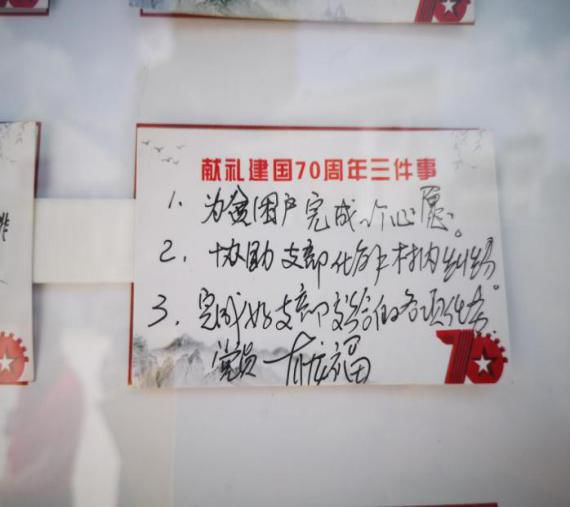 献礼建国70周年三件事
1. 为贫困户完成一个心愿。
2. 协助支部化解村内纠纷。
3. 完成好支部交给的各项任务。
党员 福
70